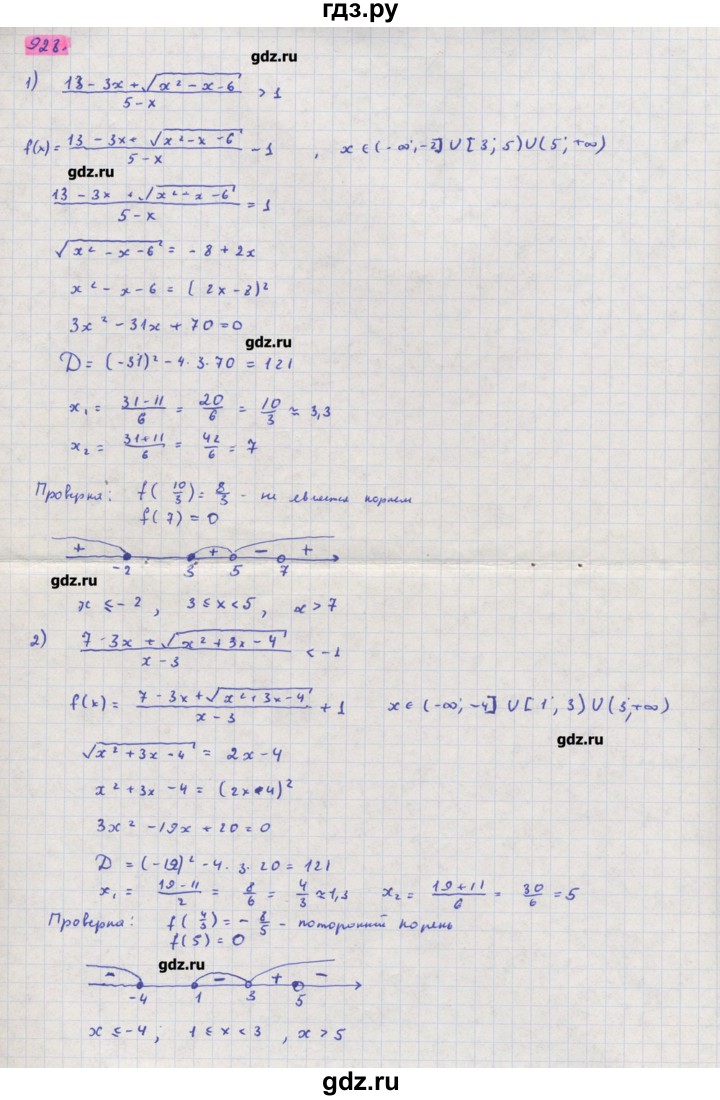 гдз.ру
928.
gdz.ru
1) (13 - 3x + √(x² - x - 6))/(5 - x) > 1
f(x) = (13 - 3x + √(x² - x - 6))/(5 - x) - 1 , x ∈ (-∞; -2] ∪ [3; 5) ∪ (5; +∞)
gdz.ru
(13 - 3x + √(x² - x - 6))/(5 - x) = 1
√(x² - x - 6) = -8 + 2x
x² - x - 6 = (2x - 8)²
3x² - 31x + 70 = 0
gdz.ru
D = (-31)² - 4 · 3 · 70 = 121
x₁ = (31 - 11)/6 = 20/6 = 10/3 ≈ 3,3
x₂ = (31 + 11)/6 = 42/6 = 7
Проверка: f(10/3) = 8/3 - не является корнем
f(7) = 0
+ + - +
-2 3 5 7
gdz.ru
x ≤ -2 , 3 ≤ x < 5 , x > 7
2) (7 - 3x + √(x² + 3x - 4))/(x - 3) < -1
f(x) = (7 - 3x + √(x² + 3x - 4))/(x - 3) + 1 x ∈ (-∞; -4] ∪ [1; 3) ∪ (3; +∞)
gdz.ru
√(x² + 3x - 4) = 2x - 4
x² + 3x - 4 = (2x - 4)²
3x² - 19x + 20 = 0
D = (-19)² - 4 · 3 · 20 = 121
x₁ = (19 - 11)/2 = 8/6 = 4/3 ≈ 1,3 x₂ = (19 + 11)/6 = 30/6 = 5
Проверка: f(4/3) = -8/5 - посторонний корень
f(5) = 0
gdz.ru
- - + -
-4 1 3 5
x ≤ -4 ; 1 ≤ x < 3 , x > 5
gdz.ru